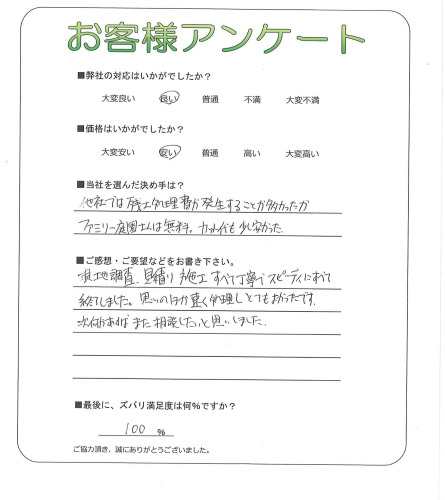 お客様アンケート
■弊社の対応はいかがでしたか？
大変良い 良い 普通 不満 大変不満
■価格はいかがでしたか？
大変安い 安い 普通 高い 大変高い
■当社を選んだ決め手は？
他社では残土処理費が発生することが多かったが
ファミリー庭園さんは無料。カット代も少し安かった
■ご感想・ご要望などをお書き下さい。
現地調査、見積り、施工 すべて丁寧でスピーディにすべて
終了しました。思いのほか速く処理しとてもよかったです。
次何かあればまた相談したいと思いました。
■最後に、ズバリ満足度は何％ですか？
100 %
ご協力頂き、誠にありがとうございました。